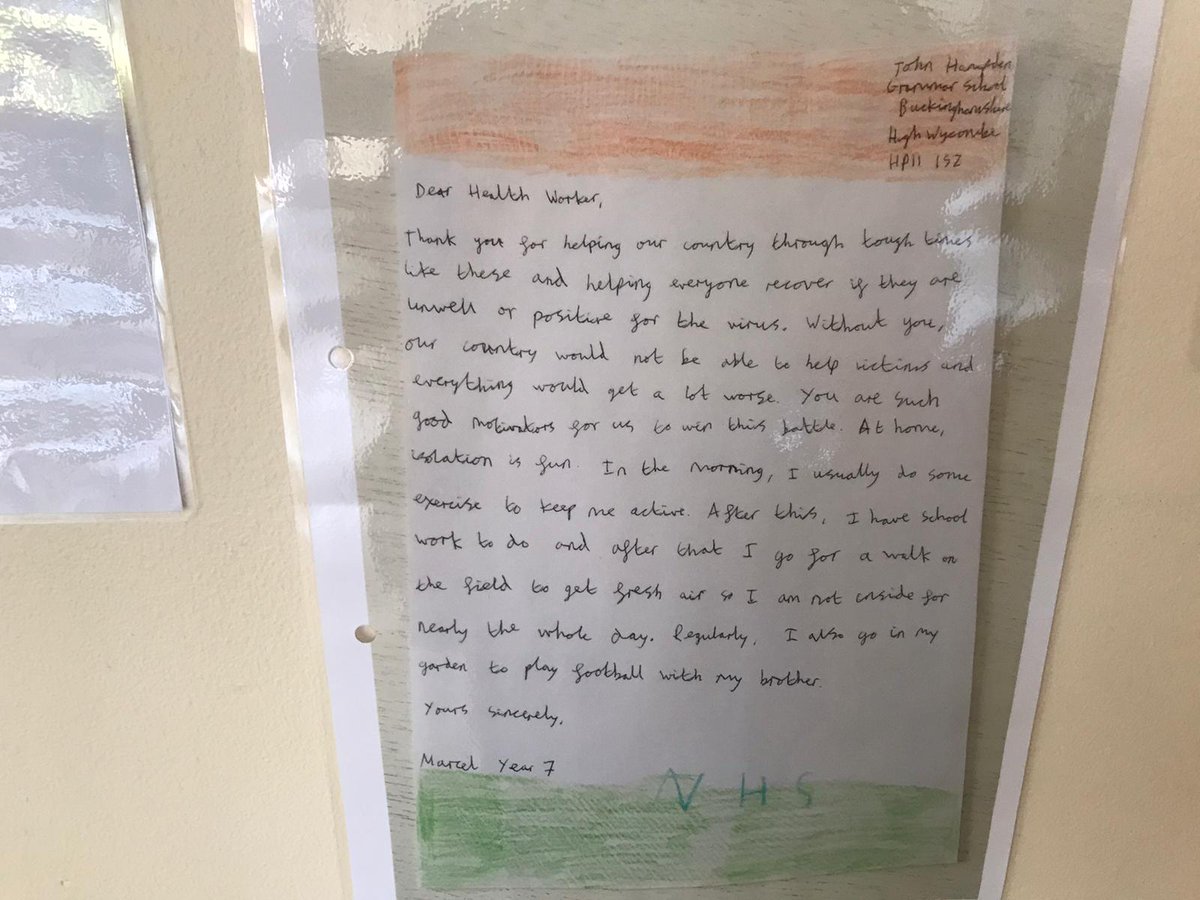 John Hampden
Grammar School
Buckinghamshire
High Wycombe
HP11 1SZ
Dear Health Worker,
Thank you for helping our country through tough times
like these and helping everyone recover if they are
unwell or positive for the virus. Without you,
our country would not be able to help victims and
everything would get a lot worse. You are such
good motivators for us to win this battle. At home,
isolation is fun. In the morning, I usually do some
exercise to keep me active. After this, I have school
work to do and after that I go for a walk on
the field to get fresh air so I am not inside for
nearly the whole day. Regularly, I also go in my
garden to play football with my brother.
Yours sincerely,
Marcel Year 7
NHS